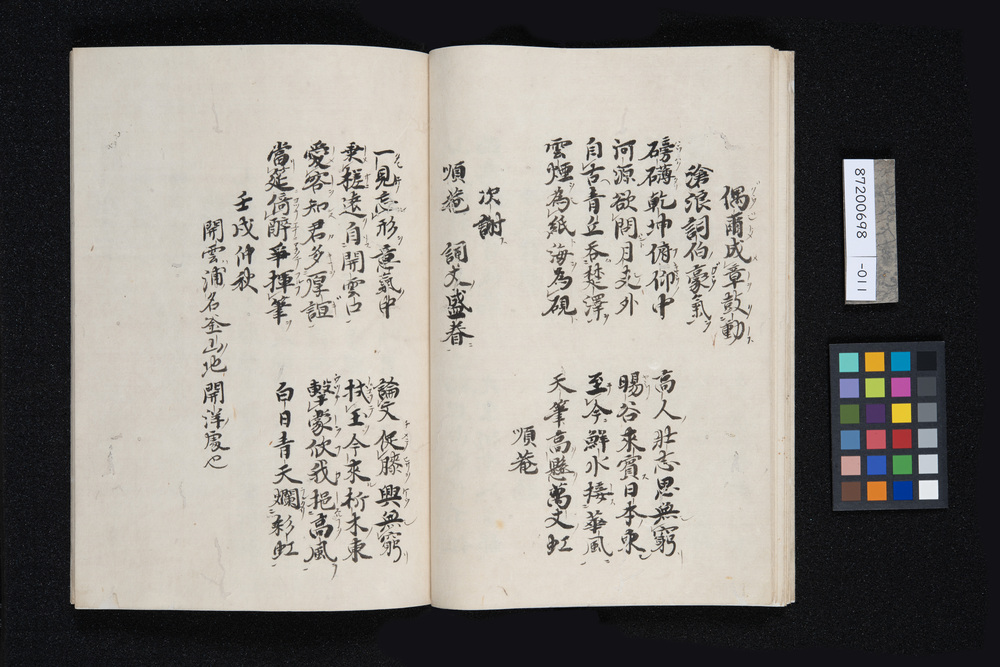 偶爾成章鼓動
滄浪詞伯豪氣
磅礴乾坤俯仰中
高人壮志思無窮
河源欲問月支外
暘谷来賓日本東
自古青丘呑楚澤
至今鮮水接華風
雲煙為紙海為硯
天筆高懸萬丈虹
順菴
次謝
順菴 詞丈盛眷
一見忘形意氣中
論文促膝興無窮
乗槎遠自開雲口
杖玉今來析木東
愛客知君多厚誼
擊蒙佽我挹高風
當筵倚醉爭揮筆
白日青天爛彩虹
壬戌仲秋
開雲浦名釜山地開洋處也
87200698
-011